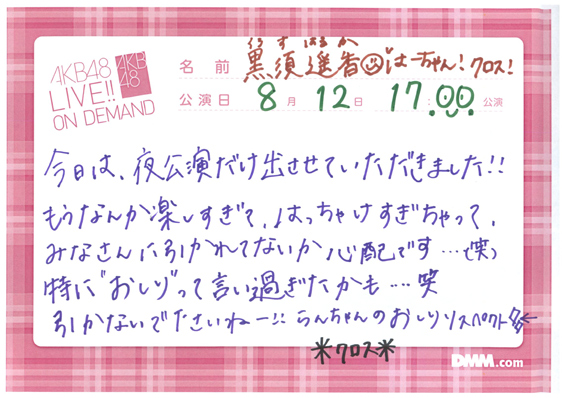 AKB48
LIVE!!
ON DEMAND
AKB
48
くろ す はる か
名前 黒須遥香 はーちゃん! クロス!
公演日 8月 12日 17:00 公演
今日は、夜公演だけ出させていただきました!!
もうなんか楽しすぎて、はっちゃけすぎちゃって、
みなさんに引かれてないか心配です…(笑)
特に"おしり"って言い過ぎたかも…笑
引かないでくださいねー!! らんちゃんのおしりリスペクト
*クロス*
DMM.com